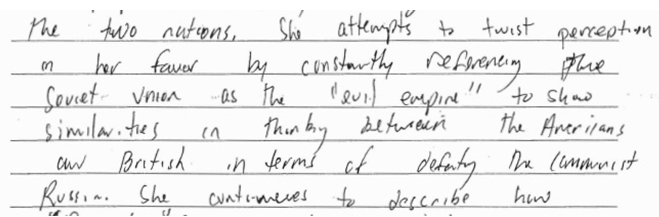 the two nations. She attempts to twist perception
in her favor by constantly referencing the
Soviet Union as the "evil empire" to show
similarities in thinking between the Americans
and British in terms of defeating the Communist
Russia. She continues to describe how